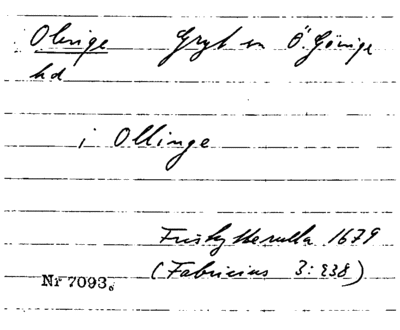 Olinge Gryt sn Ö. Göinge
hd
i Ollinge
Friskytterulla 1679
(Fabricius 3:238)
Nr 7093.